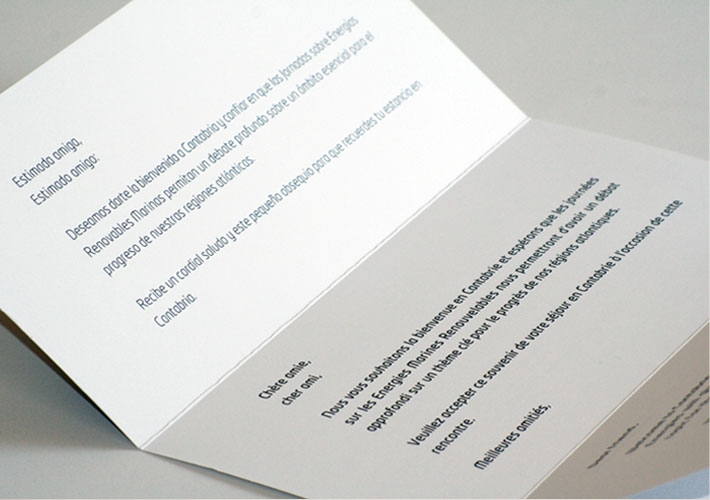 Estimada amiga,
Estimado amigo:
Deseamos darte la bienvenida a Cantabria y confiar en que las Jornadas sobre Energías
Renovables Marinas permitan un debate profundo sobre un ámbito esencial para el
progreso de nuestras regiones atlánticas.
Recibe un cordial saludo y este pequeño obsequio para que recuerdes tu estancia en
Cantabria.
Chère amie,
cher ami,
Nous vous souhaitons la bienvenue en Cantabrie et espérons que les journées
sur les Energies Marines Renouvelables nous permettront d'avoir un débat
approfondi sur un thème clé pour le progrès de nos régions atlantiques.
Veuillez accepter ce souvenir de votre séjour en Cantabrie à l'occasion de cette
rencontre.
Meilleures amitiés,